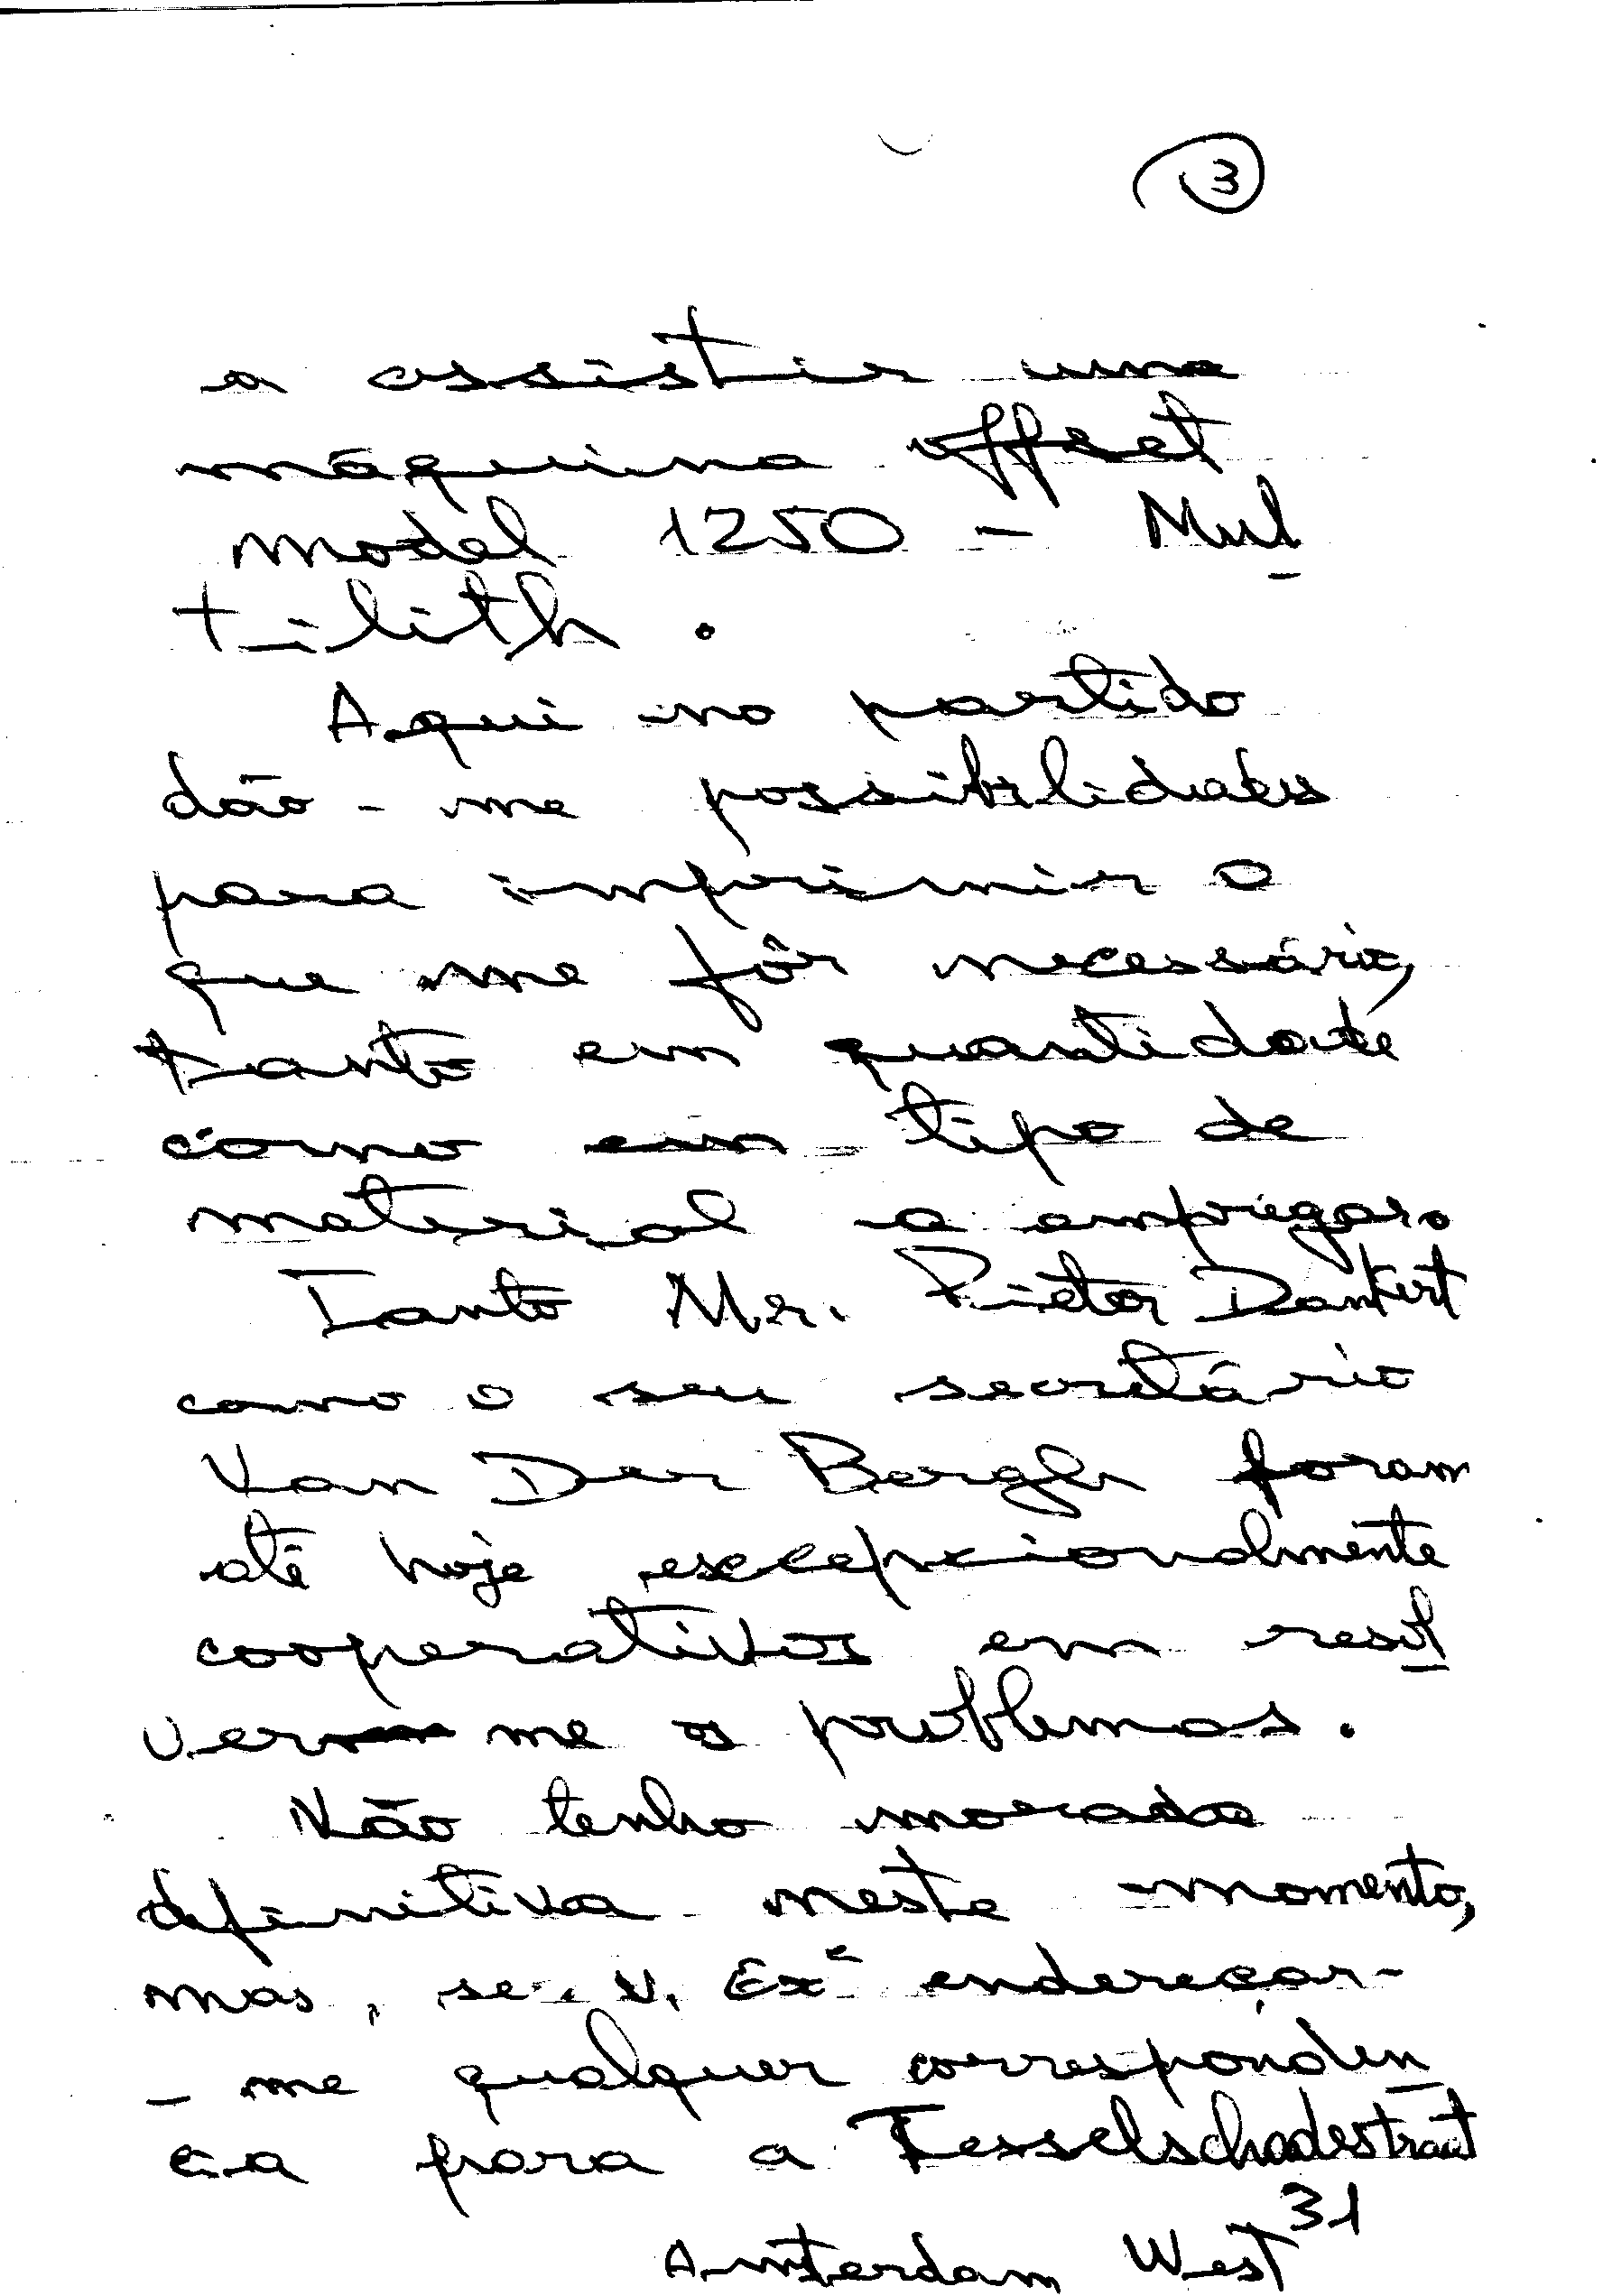 3
a assistir uma
máquina offset
model 1250 - Mul
tilith.
Aqui no partido
dão-me possibilidades
para imprimir o
que me fôr necessário,
tanto em quantidade
como em tipo de
material a empregar.
Tanto Mr. Pieter Dankert
como o seu secretário
Van Der Bergh foram
até hoje escepcionalmente
cooperativos em resol
verem me os problemas.
Não tenho morada
definitiva neste momento,
mas, se V. Exª endereçar-
-me qualquer corresponden
cia para a Tesselschadestraat
31
Amsterdam West